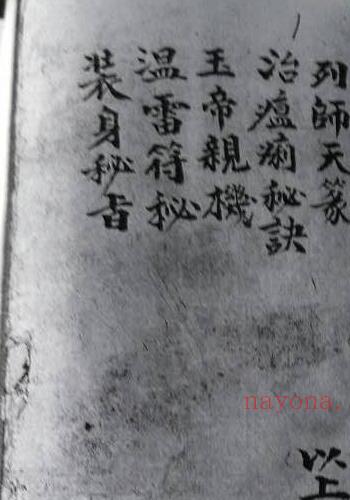 列師天篆
治瘟痢秘訣
玉帝親機
温雷符秘
装身秘旨
以上
nayona.